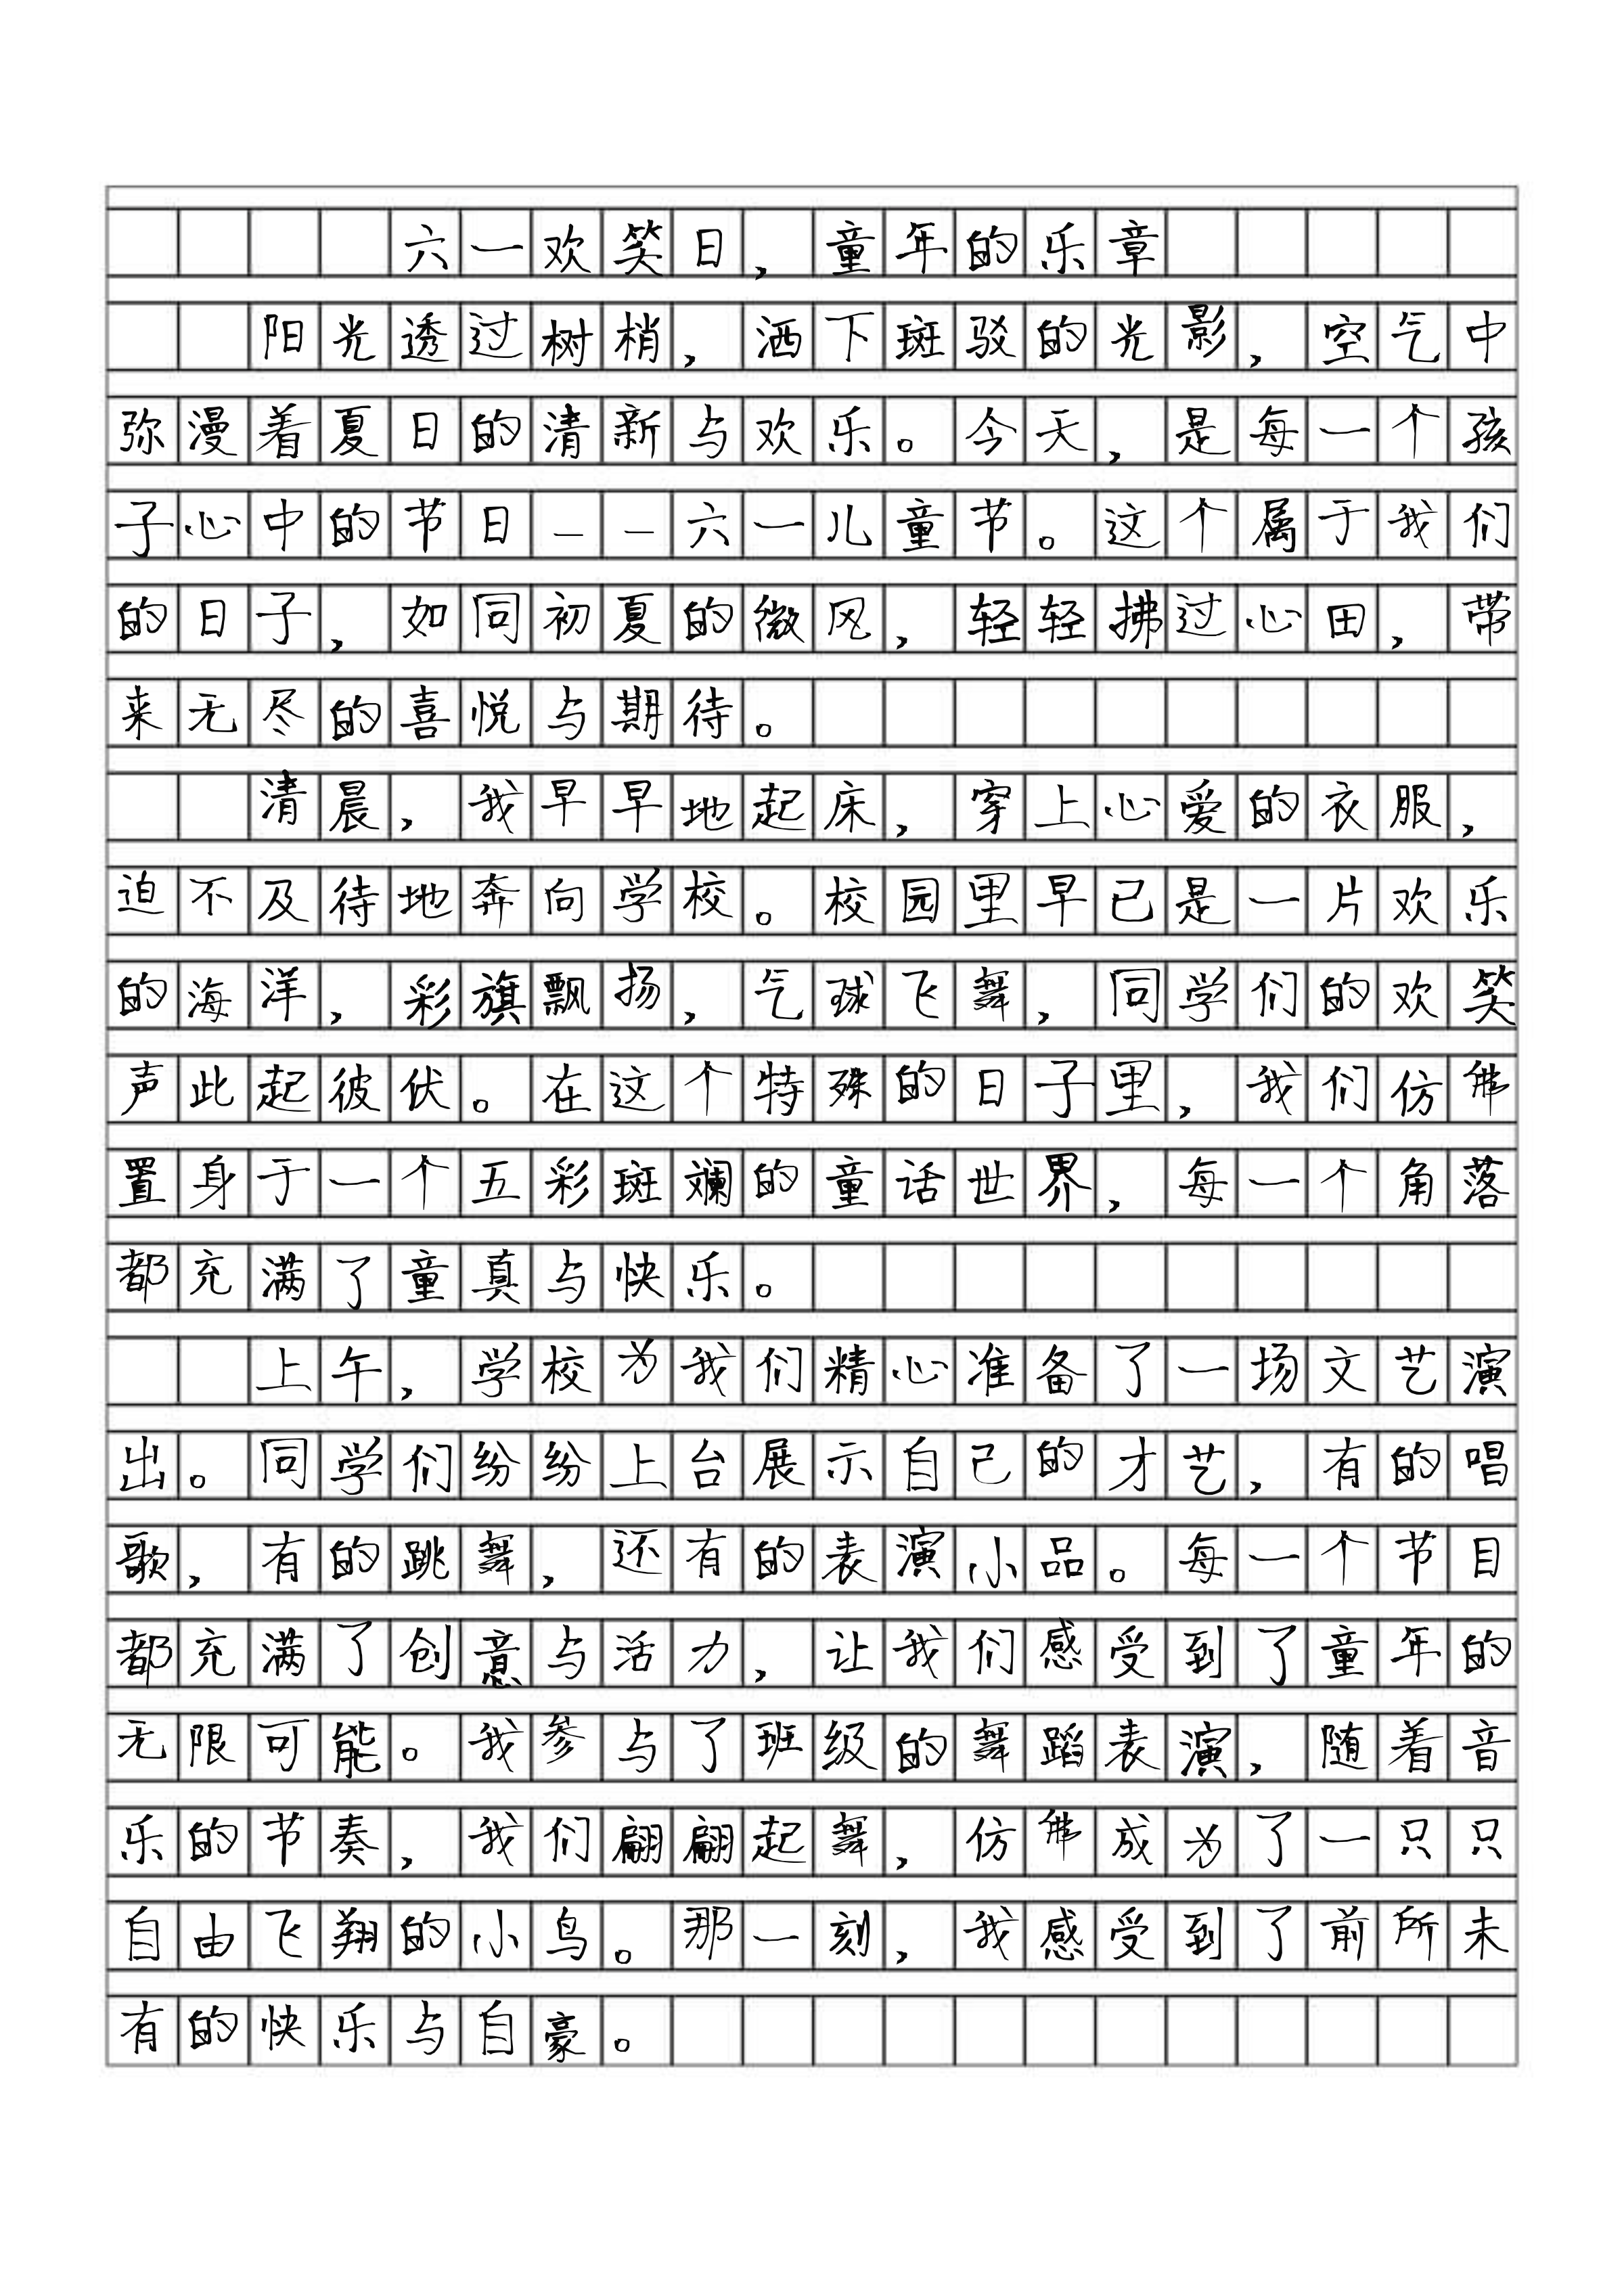 六一欢笑日，童年的乐章
阳光透过树梢，洒下斑驳的光影，空气中
弥漫着夏日的清新与欢乐。今天，是每一个孩
子心中的节日——六一儿童节。这个属于我们
的日子，如同初夏的微风，轻轻拂过心田，带
来无尽的喜悦与期待。
清晨，我早早地起床，穿上心爱的衣服，
迫不及待地奔向学校。校园里早已是一片欢乐
的海洋，彩旗飘扬，气球飞舞，同学们的欢笑
声此起彼伏。在这个特殊的日子里，我们仿佛
置身于一个五彩斑斓的童话世界，每一个角落
都充满了童真与快乐。
上午，学校为我们精心准备了一场文艺演
出。同学们纷纷上台展示自己的才艺，有的唱
歌，有的跳舞，还有的表演小品。每一个节目
都充满了创意与活力，让我们感受到了童年的
无限可能。我参与了班级的舞蹈表演，随着音
乐的节奏，我们翩翩起舞，仿佛成为了一只只
自由飞翔的小鸟。那一刻，我感受到了前所未
有的快乐与自豪。